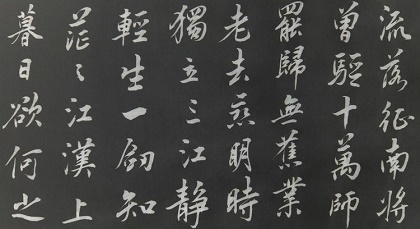 流落征南將
曾驅十萬師
罷歸無舊業
老去戀明時
獨立三江静
輕生一劒知
茫〻江漢上
暮日欲何之